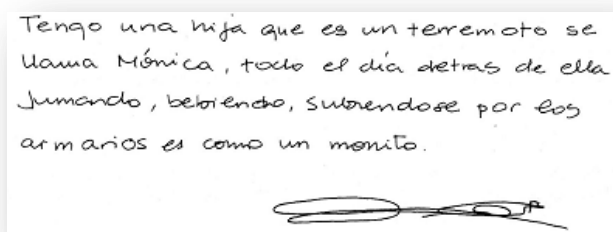 Tengo una hija que es un terremoto se
llama Mónica, todo el día detras de ella
Jumando, bebiendo, subiendose por los
armarios es como un monito.